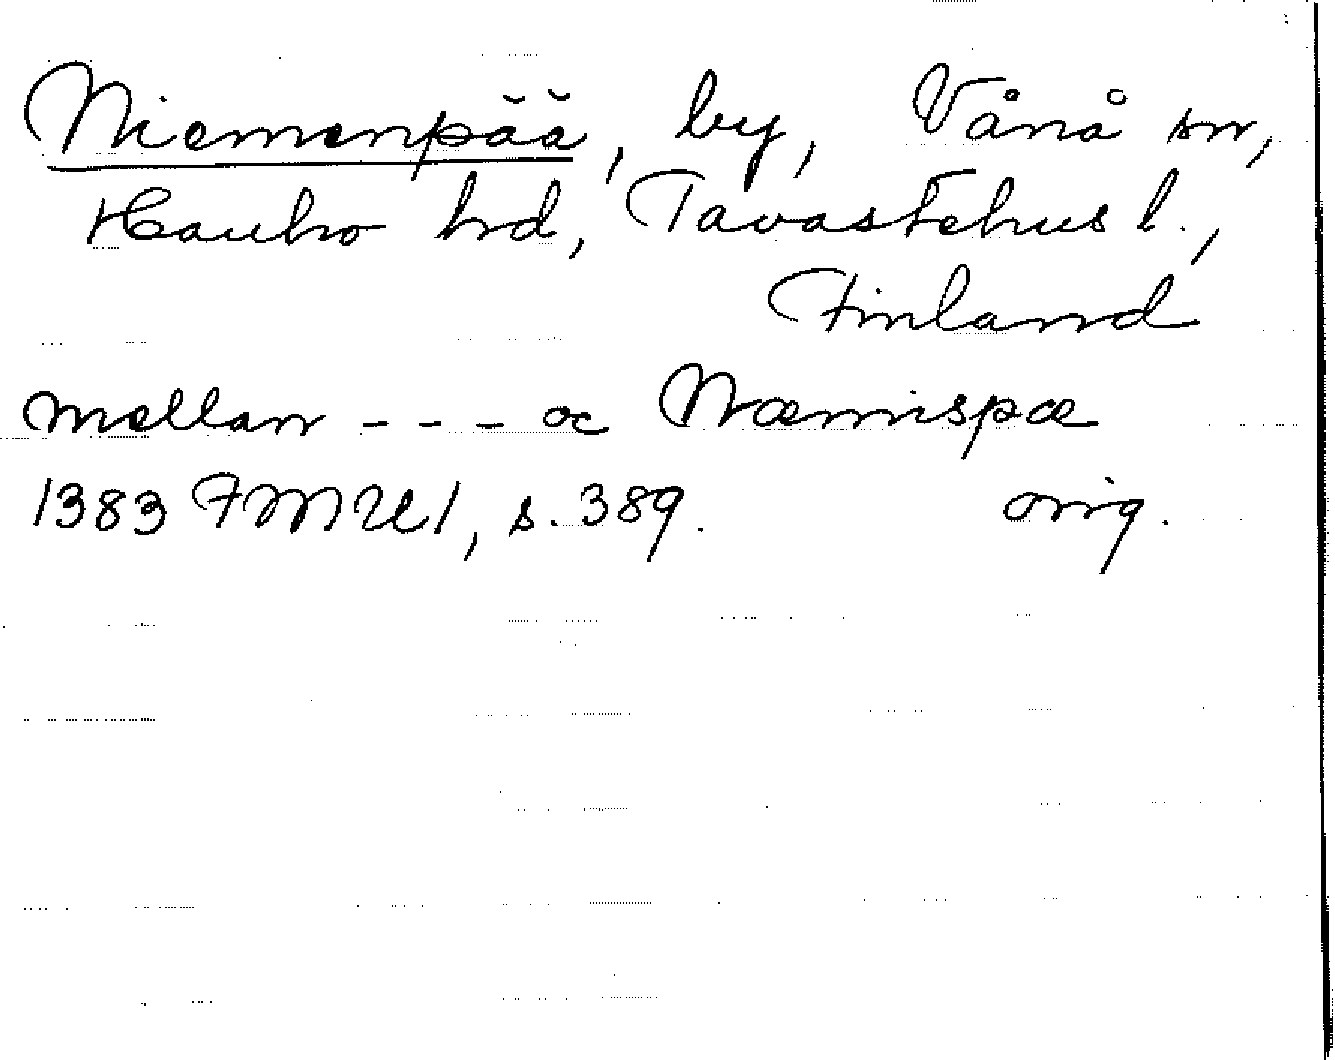 Niemenpää, by, Vånå sn,
Hauho hd, Tavastehus l.,
Finland
mellan - - - oc Næmispæ
1383 FMU 1, s. 389. orig.